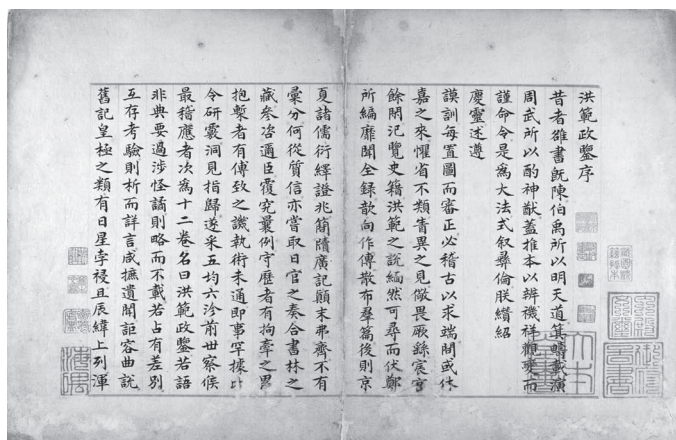 洪範政鑒序
昔者雒書既陳伯禹所以明天道箕疇載演
周武所以酌神猷蓋推本以辨禨祥觀象而
謹命令是爲大法式叙彞倫朕纘紹
慶靈述遵
謨訓每置圖而審正必稽古以求端閒或休
嘉之來懼省不類眚異之見儆畏厥繇宸
餘閒汜覽史籍洪範之說緬然可尋而伏鄭
所編靡聞全録歆向作傳散布羣篇後則京
夏諸儒衍繹證兆簡牘廣記顚末弗齊不有
彙分何從質信亦嘗取日官之奏合書林之
藏參咨邇臣覆究曩例字歷者有拘牽之累
抱槧者有傅致之譏執術未通即事罕據
令研覈洞見指歸遂采五均六沴前世察候
最稽應者次爲十二卷名曰洪範政鑒若語
非典要過涉怪譎則略而不載若占有差别
互存考驗則析而詳言咸摭遺聞詎容曲說
舊記皇極之類有日星孛祲且辰緯上列渾